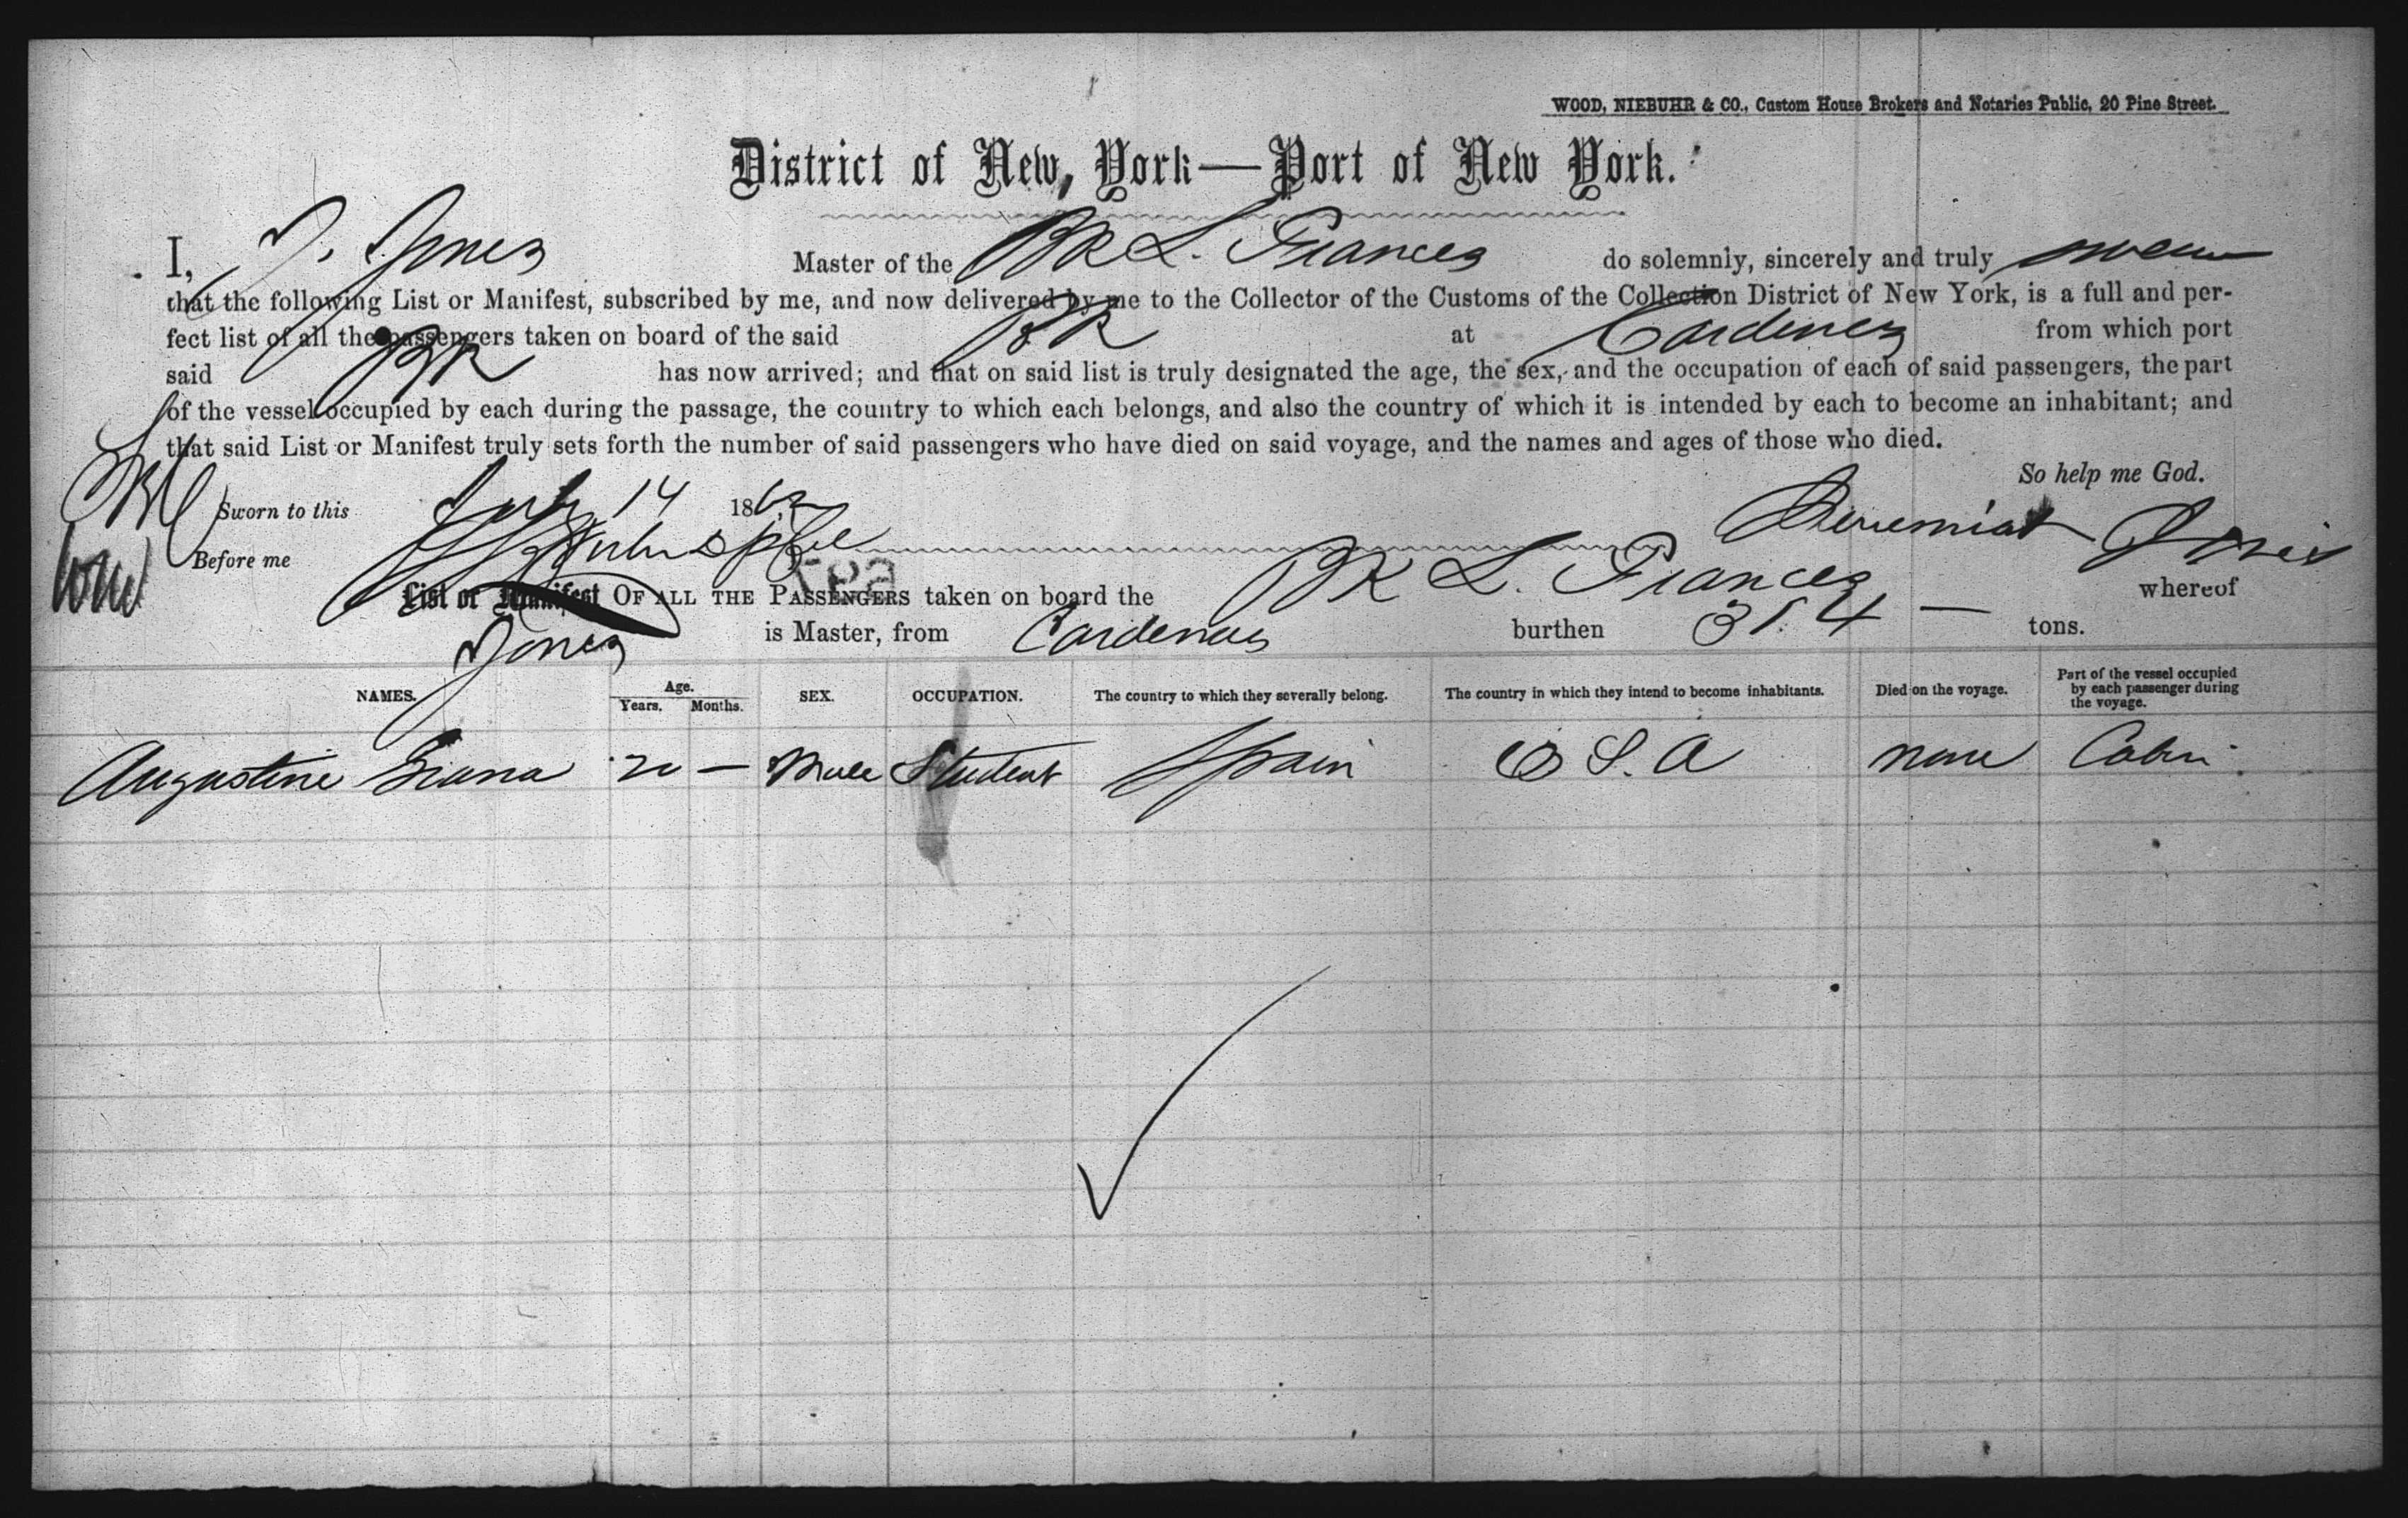 WOOD, NIEBUHR & CO., Custom House Brokers and Notaries Public, 20 Pine Street.
District of New, York—Port of New York.
I, J. Jones Master of the BK L. Frances do solemnly, sincerely and truly swear
that the following List or Manifest, subscribed by me, and now delivered by me to the Collector of the Customs of the Collection District of New York, is a full and per-
fect list of all the passengers taken on board of the said BK at Cardenas from which port
said BK has now arrived; and that on said list is truly designated the age, the sex, and the occupation of each of said passengers, the part
of the vessel occupied by each during the passage, the country to which each belongs, and also the country of which it is intended by each to become an inhabitant; and
that said List or Manifest truly sets forth the number of said passengers who have died on said voyage, and the names and ages of those who died.
So help me God.
Sworn to this July 14 1862
Jeremiah Jones
Before me
697
List or Manifest OF ALL THE PASSENGERS taken on board the BK L. Frances whereof
Jones is Master, from Cardenas burthen 314 — tons.
NAMES. Age. Years. Months. SEX. OCCUPATION. The country to which they severally belong. The country in which they intend to become inhabitants. Died on the voyage. Part of the vessel occupied by each passenger during the voyage.
Augustine 20 — Male Student Spain U S. A none Cabin